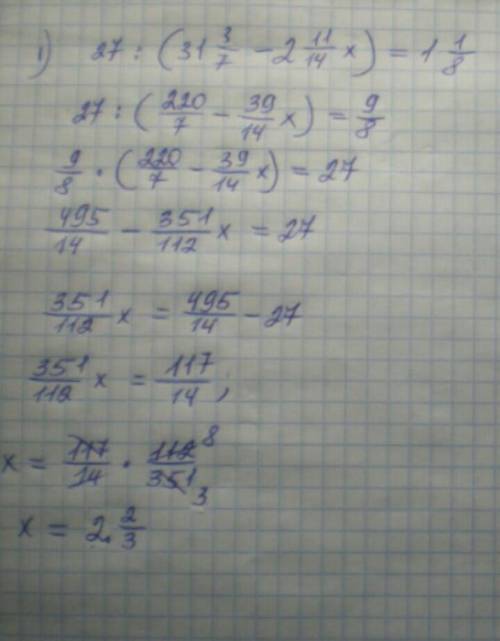 1) 27 : (31 3/7 − 2 11/14 x) = 1 1/8
27 : (220/7 − 39/14 x) = 9/8
9/8 · (220/7 − 39/14 x) = 27
495/14 − 351/112 x = 27
351/112 x = 495/14 − 27
351/112 x = 117/14 ;
x = 117/14 · 112 8/351 3
x = 2 2/3